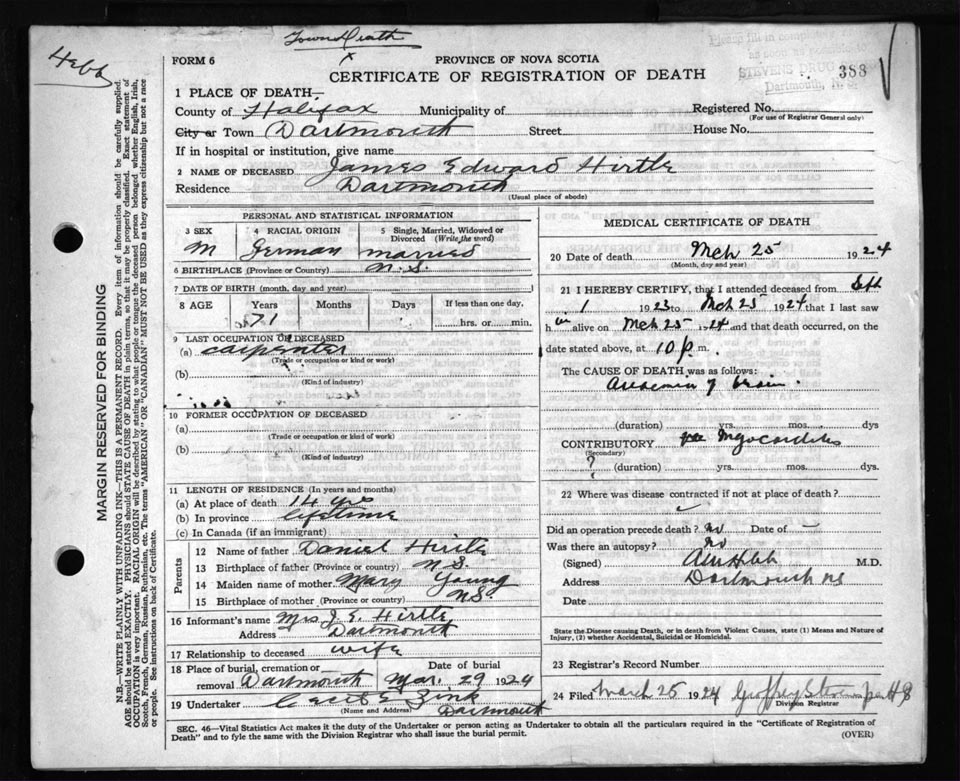 Town Death
Hebb
Please fill in
STEVENS DRUG
Dartmouth, N. S.
388
FORM 6
PROVINCE OF NOVA SCOTIA
CERTIFICATE OF REGISTRATION OF DEATH
1 PLACE OF DEATH—
County of Halifax Municipality of Registered No.
(For use of Registrar General only)
City or Town Dartmouth Street House No.
If in hospital or institution, give name
2 NAME OF DECEASED James Edward Hirtle
Residence Dartmouth
(Usual place of abode)
PERSONAL AND STATISTICAL INFORMATION
3 SEX 4 RACIAL ORIGIN 5 Single, Married, Widowed or Divorced (Write the word)
M German married
6 BIRTHPLACE (Province or Country) N.S.
7 DATE OF BIRTH (month, day and year)
8 AGE Years Months Days If less than one day,
71 hrs. or min.
9 LAST OCCUPATION OF DECEASED
(a) carpenter
(Trade or occupation or kind or work)
(b)
(Kind of industry)
10 FORMER OCCUPATION OF DECEASED
(a)
(Trade or occupation or kind of work)
(b)
(Kind of industry)
11 LENGTH OF RESIDENCE (In years and months)
(a) At place of death 14 yrs
(b) In province lifetime
(c) In Canada (if an immigrant)
Parents
12 Name of father Daniel Hirtle
13 Birthplace of father (Province or country) N S.
14 Maiden name of mother Mary Young
15 Birthplace of mother (Province or country) N S.
16 Informant's name Mrs J. E. Hirtle
Address Dartmouth
17 Relationship to deceased wife
18 Place of burial, cremation or removal Dartmouth Date of burial Mar. 29 1924
19 Undertaker Zink
(Name and Address) Dartmouth
MEDICAL CERTIFICATE OF DEATH
20 Date of death Mch 25 1924
(Month, day and year)
21 I HEREBY CERTIFY, that I attended deceased from
1 1923 to Mch 25 1924 that I last saw
h im alive on Mch 25 1924 and that death occurred, on
date stated above, at 10 p. m.
The CAUSE OF DEATH was as follows:
Anaemia of brain.
(duration) yrs. mos. dys.
CONTRIBUTORY Myocarditis
(Secondary)
? (duration) yrs. mos. dys.
22 Where was disease contracted if not at place of death?
Did an operation precede death? no Date of —
Was there an autopsy? no
(Signed) M.D.
Address Dartmouth NS
Date
State the Disease causing Death, or in death from Violent Causes, state (1) Means and Nature of Injury, (2) whether Accidental, Suicidal or Homicidal.
23 Registrar's Record Number
24 Filed March 25 1924
Division Registrar
SEC. 46—Vital Statistics Act makes it the duty of the Undertaker or person acting as Undertaker to obtain all the particulars required in the "Certificate of Registration of
Death" and to fyle the same with the Division Registrar who shall issue the burial permit. (OVER)
MARGIN RESERVED FOR BINDING
N.B.—WRITE PLAINLY WITH UNFADING INK—THIS IS A PERMANENT RECORD. Every item of information should be carefully supplied.
AGE should be stated EXACTLY. PHYSICIANS should STATE CAUSE OF DEATH in plain terms, so that it may be properly classified. Exact statement of
OCCUPATION is very important. RACIAL ORIGIN will be described by stating to what people or tongue the deceased person belonged whether English, Irish,
Scotch, French, German, Russian, Ruthenian, etc. The terms "AMERICAN" OR "CANADIAN" MUST NOT BE USED as they express citizenship but not a race
or people. See instructions on back of Certificate.